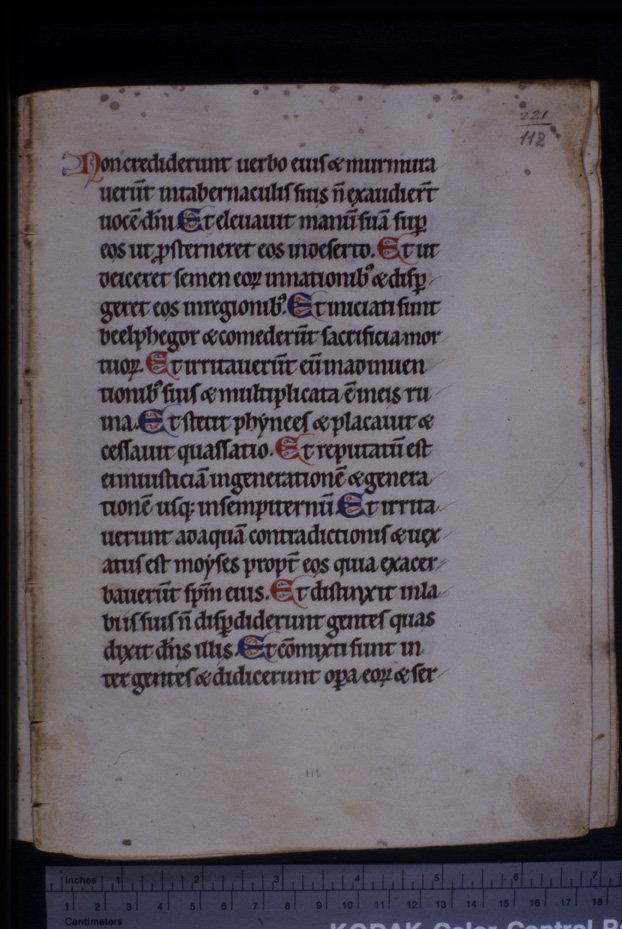 221
112
Non crediderunt uerbo eius & murmura
uerūt intabernaculis suis n̄ exaudiert̄
uocē dn̄i. Et eleuauit manū suā suꝑ
eos ut ꝓsterneret eos indeserto. Et ut
deiceret semen eoꝝ innationibꝰ & disꝑ
geret eos inregionibꝰ. Et iniciati sunt
beelphegor & comederūt sacrificia mor
tuoꝝ. Et irritauerūt eū inadinuen
tionibꝰ suis & multiplicata ē ineis ru
ina. Et stetit phẏnees & placauit &
cessauit quassatio. Et reputatū est
ei iniusticiā ingenerationē & genera
tionē usq; insempiternū. Et irrita
uerunt adaquā contradictionis & uex
atus est moẏses propt̄ eos quia exacer
bauerūt sp̄m eius. Et distinxit inla
biis suis n̄ disꝑdiderunt gentes quas
dixit dn̄s illis. Et cōmixti sunt in
ter gentes & didicerunt oꝑa eoꝝ & ser
112
Inches 1 2 3 4 5 6 7
1 2 3 4 5 6 7 8 9 10 11 12 13 14 15 16 17 18
Centimeters
KODAK Color Control P